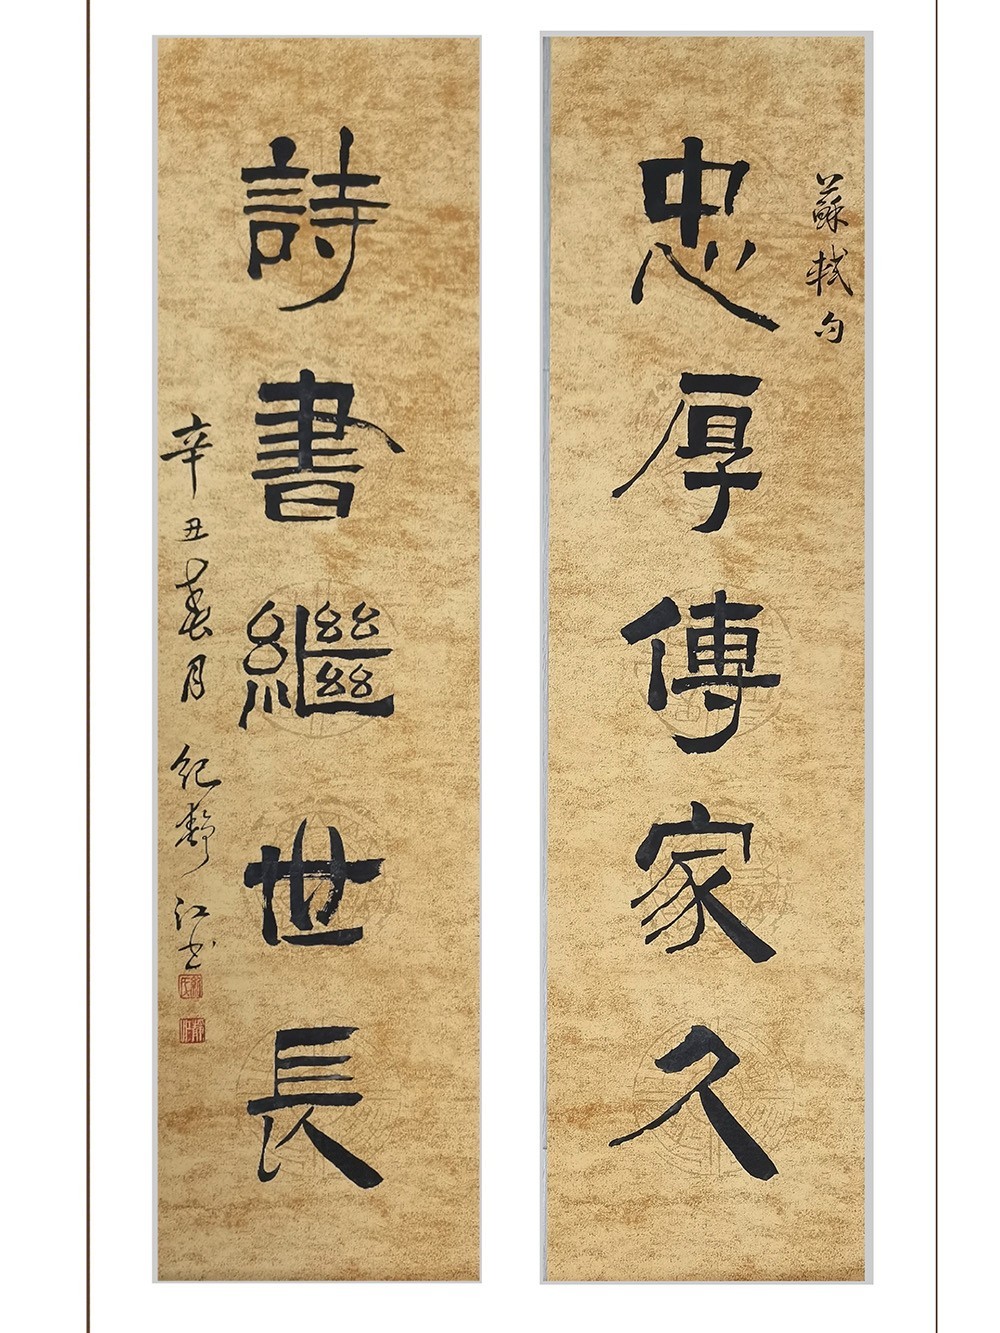 蘇軾句
忠厚傳家久
詩書繼世長
辛丑春月紀靜江书